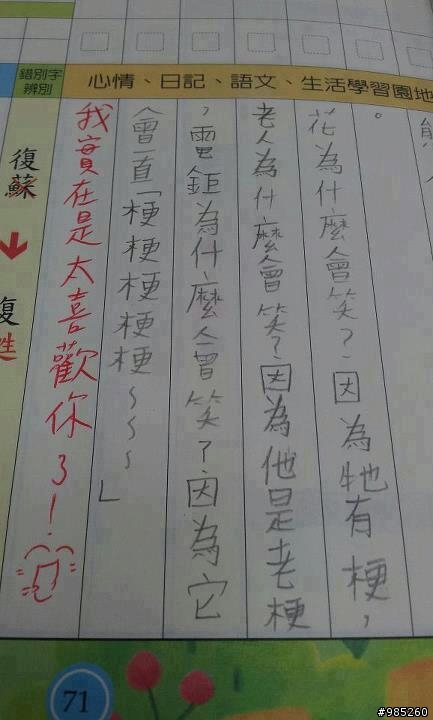 心情、日記、語文、生活學習園地
。
花為什麼會笑?因為牠有梗,
老人為什麼會笑?因為他是老梗
,電鉅為什麼會笑?因為它
會一直「梗梗梗梗梗~~~」
我實在是太喜歡你了!
錯別字
辨別
復蘇
71
#985260